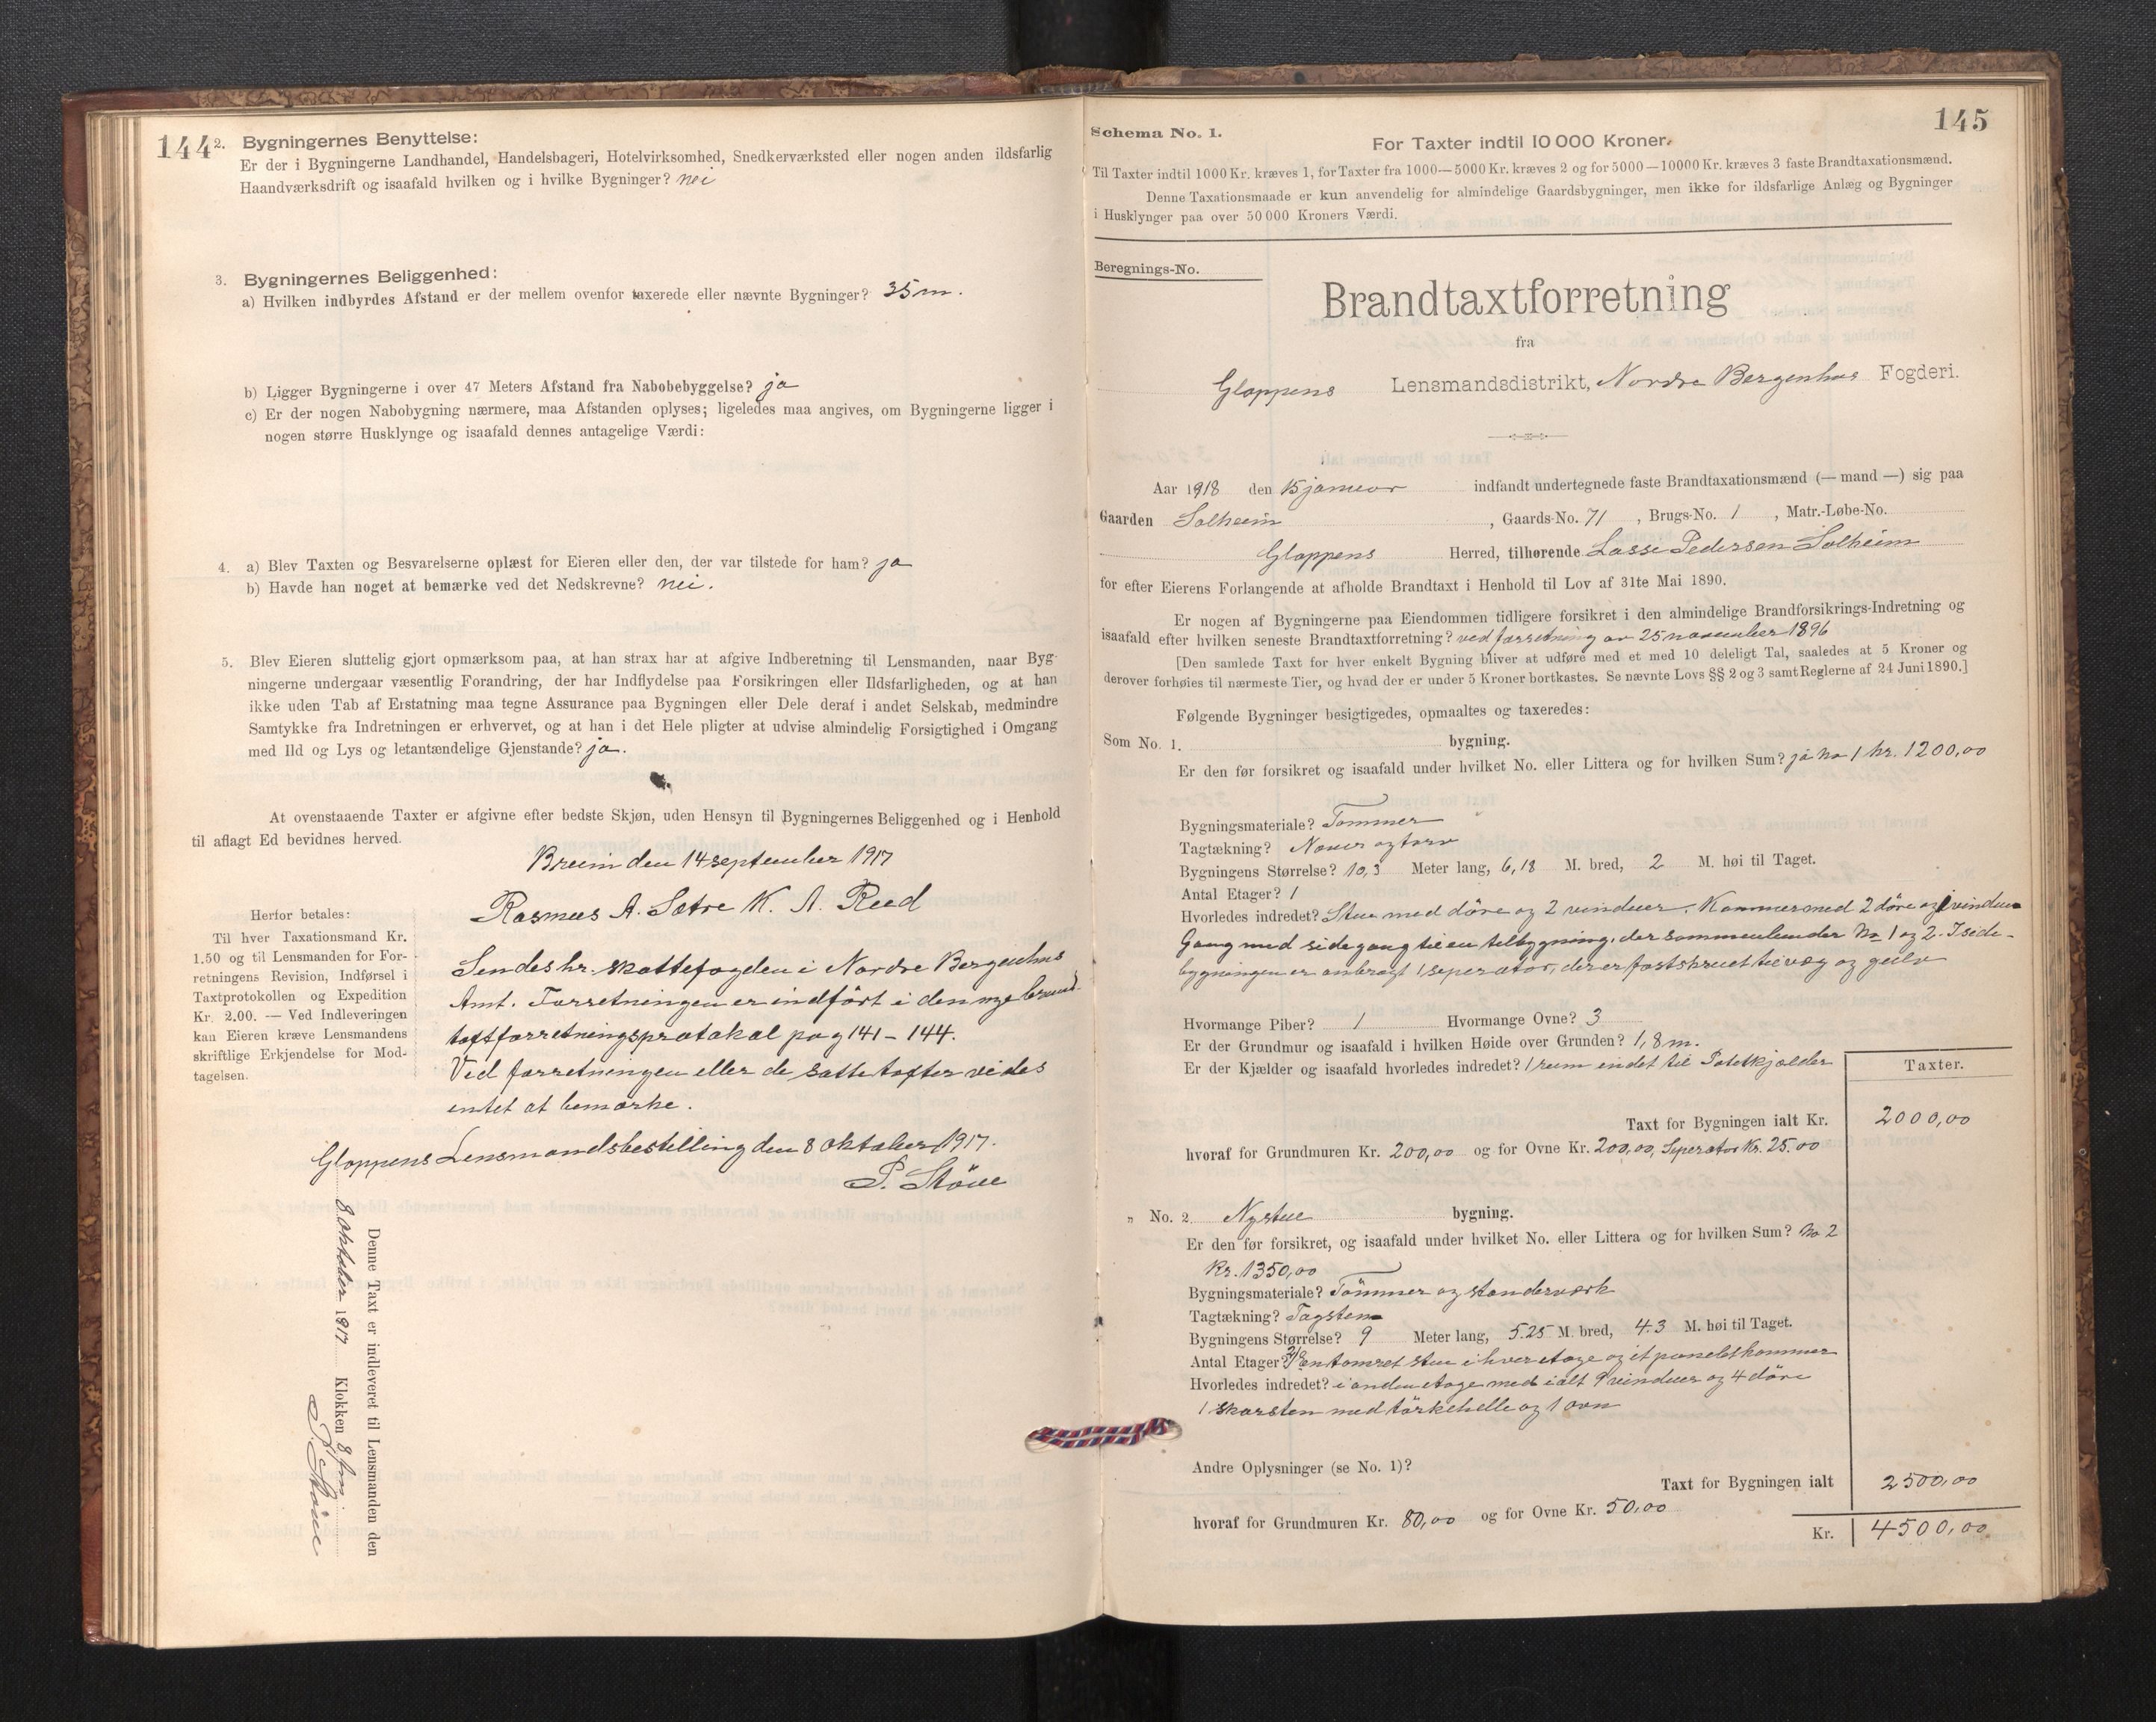 144
2. Bygningernes Benyttelse:
Er der i Bygningerne Landhandel, Handelsbageri, Hotelvirksomhed, Snedkerværksted eller nogen anden ildsfarlig
Haandværksdrift og isaafald hvilken og i hvilke Bygninger? nei
3. Bygningernes Beliggenhed:
a) Hvilken indbyrdes Afstand er der mellem ovenfor taxerede eller nævnte Bygninger? 35 m.
b) Ligger Bygningerne i over 47 Meters Afstand fra Nabobebyggelse? ja
c) Er der nogen Nabobygning nærmere, maa Afstanden oplyses; ligeledes maa angives, om Bygningerne ligger i
nogen større Husklynge og isaafald dennes antagelige Værdi:
4. a) Blev Taxten og Besvarelserne oplæst for Eieren eller den, der var tilstede for ham? ja
b) Havde han noget at bemærke ved det Nedskrevne? nei.
5. Blev Eieren sluttelig gjort opmærksom paa, at han strax har at afgive Indberetning til Lensmanden, naar Byg-
ningerne undergaar væsentlig Forandring, der har Indflydelse paa Forsikringen eller Ildsfarligheden, og at han
ikke uden Tab af Erstatning maa tegne Assurance paa Bygningen eller Dele deraf i andet Selskab, medmindre
Samtykke fra Indretningen er erhvervet, og at han i det Hele pligter at udvise almindelig Forsigtighed i Omgang
med Ild og Lys og letantændelige Gjenstande? ja.
At ovenstaaende Taxter er afgivne efter bedste Skjøn, uden Hensyn til Bygningernes Beliggenhed og i Henhold
til aflagt Ed bevidnes herved.
Breim den 14 september 1917
Rasmus A. Sætre K. A. Reed
Herfor betales:
Til hver Taxationsmand Kr.
1.50 og til Lensmanden for For-
retningens Revision, Indførsel i
Taxtprotokollen og Expedition
Kr. 2.00. — Ved Indleveringen
kan Eieren kræve Lensmandens
skriftlige Erkjendelse for Mod-
tagelsen.
Sendes hr. skattefogden i Nordre Bergenhus
Amt. Forretningen er indført i den nye brand-
taxtforretningsprotokol pag 141 - 144.
Ved forretningen eller de satte taxter vides
intet at bemærke.
Gloppens Lensmandsbestilling den 8 oktober 1917.
P. Støve
Denne Taxt er indleveret til Lensmanden den
8. oktober 1917 Klokken 8 fm.
P. Støve
145
Schema No. 1.
For Taxter indtil 10 000 Kroner.
Til Taxter indtil 1000 Kr. kræves 1, for Taxter fra 1000—5000 Kr. kræves 2 og for 5000—10000 Kr. kræves 3 faste Brandtaxationsmænd.
Denne Taxationsmaade er kun anvendelig for almindelige Gaardsbygninger, men ikke for ildsfarlige Anlæg og Bygninger
i Husklynger paa over 50 000 Kroners Værdi.
Beregnings-No.
Brandtaxtforretning
fra
Gloppens Lensmandsdistrikt, Nordre Bergenhus Fogderi.
Aar 1918 den 15 januar indfandt undertegnede faste Brandtaxationsmænd (— mand —) sig paa
Gaarden Solheim, Gaards-No. 71, Brugs-No. 1, Matr.-Løbe-No.
Gloppens Herred, tilhørende Lasse Pedersen Solheim
for efter Eierens Forlangende at afholde Brandtaxt i Henhold til Lov af 31te Mai 1890.
Er nogen af Bygningerne paa Eiendommen tidligere forsikret i den almindelige Brandforsikrings-Indretning og
isaafald efter hvilken seneste Brandtaxtforretning? ved forretning av 25 november 1896
[Den samlede Taxt for hver enkelt Bygning bliver at udføre med et med 10 deleligt Tal, saaledes at 5 Kroner og
derover forhøies til nærmeste Tier, og hvad der er under 5 Kroner bortkastes. Se nævnte Lovs §§ 2 og 3 samt Reglerne af 24 Juni 1890.]
Følgende Bygninger besigtigedes, opmaaltes og taxeredes:
Som No. 1. bygning.
Er den før forsikret og isaafald under hvilket No. eller Littera og for hvilken Sum? ja No 1 kr. 1200,00
Bygningsmateriale? Tømmer
Tagtækning? Næver og torv
Bygningens Størrelse? 10,3 Meter lang, 6,18 M. bred, 2 M. høi til Taget.
Antal Etager? 1
Hvorledes indredet? Stue med døre og 2 vinduer. Kammers med 2 døre og 1 vindue
Gang med sidegang til en tilbygning, der sammenbinder No 1 og 2. I side-
bygningen er anbragt 1 seperator, der er fastskruet til væg og gulv
Hvormange Piber? 1 Hvormange Ovne? 3
Er der Grundmur og isaafald i hvilken Høide over Grunden? 1,8 m.
Er der Kjælder og isaafald hvorledes indredet? 1 rum indet til Potetkjælder
Taxter.
Taxt for Bygningen ialt Kr. 2000,00
hvoraf for Grundmuren Kr. 200,00 og for Ovne Kr. 200,00, Seperator Kr. 25.00
" No. 2. Nystue bygning.
Er den før forsikret, og isaafald under hvilket No. eller Littera og for hvilken Sum? No 2
Kr. 1350,00
Bygningsmateriale? Tømmer og standerværk
Tagtækning? Tagsten
Bygningens Størrelse? 9 Meter lang, 5.25 M. bred, 4.3 M. høi til Taget.
Antal Etager? 2 En tømret stue i hver etage og et panelet kammer
Hvorledes indredet? i anden etage med ialt 9 vinduer og 4 døre
1 skorsten med tørkehelle og 1 ovn
Andre Oplysninger (se No. 1)?
Taxt for Bygningen ialt 2500,00
hvoraf for Grundmuren Kr. 80,00 og for Ovne Kr. 50,00
Kr. 4500,00